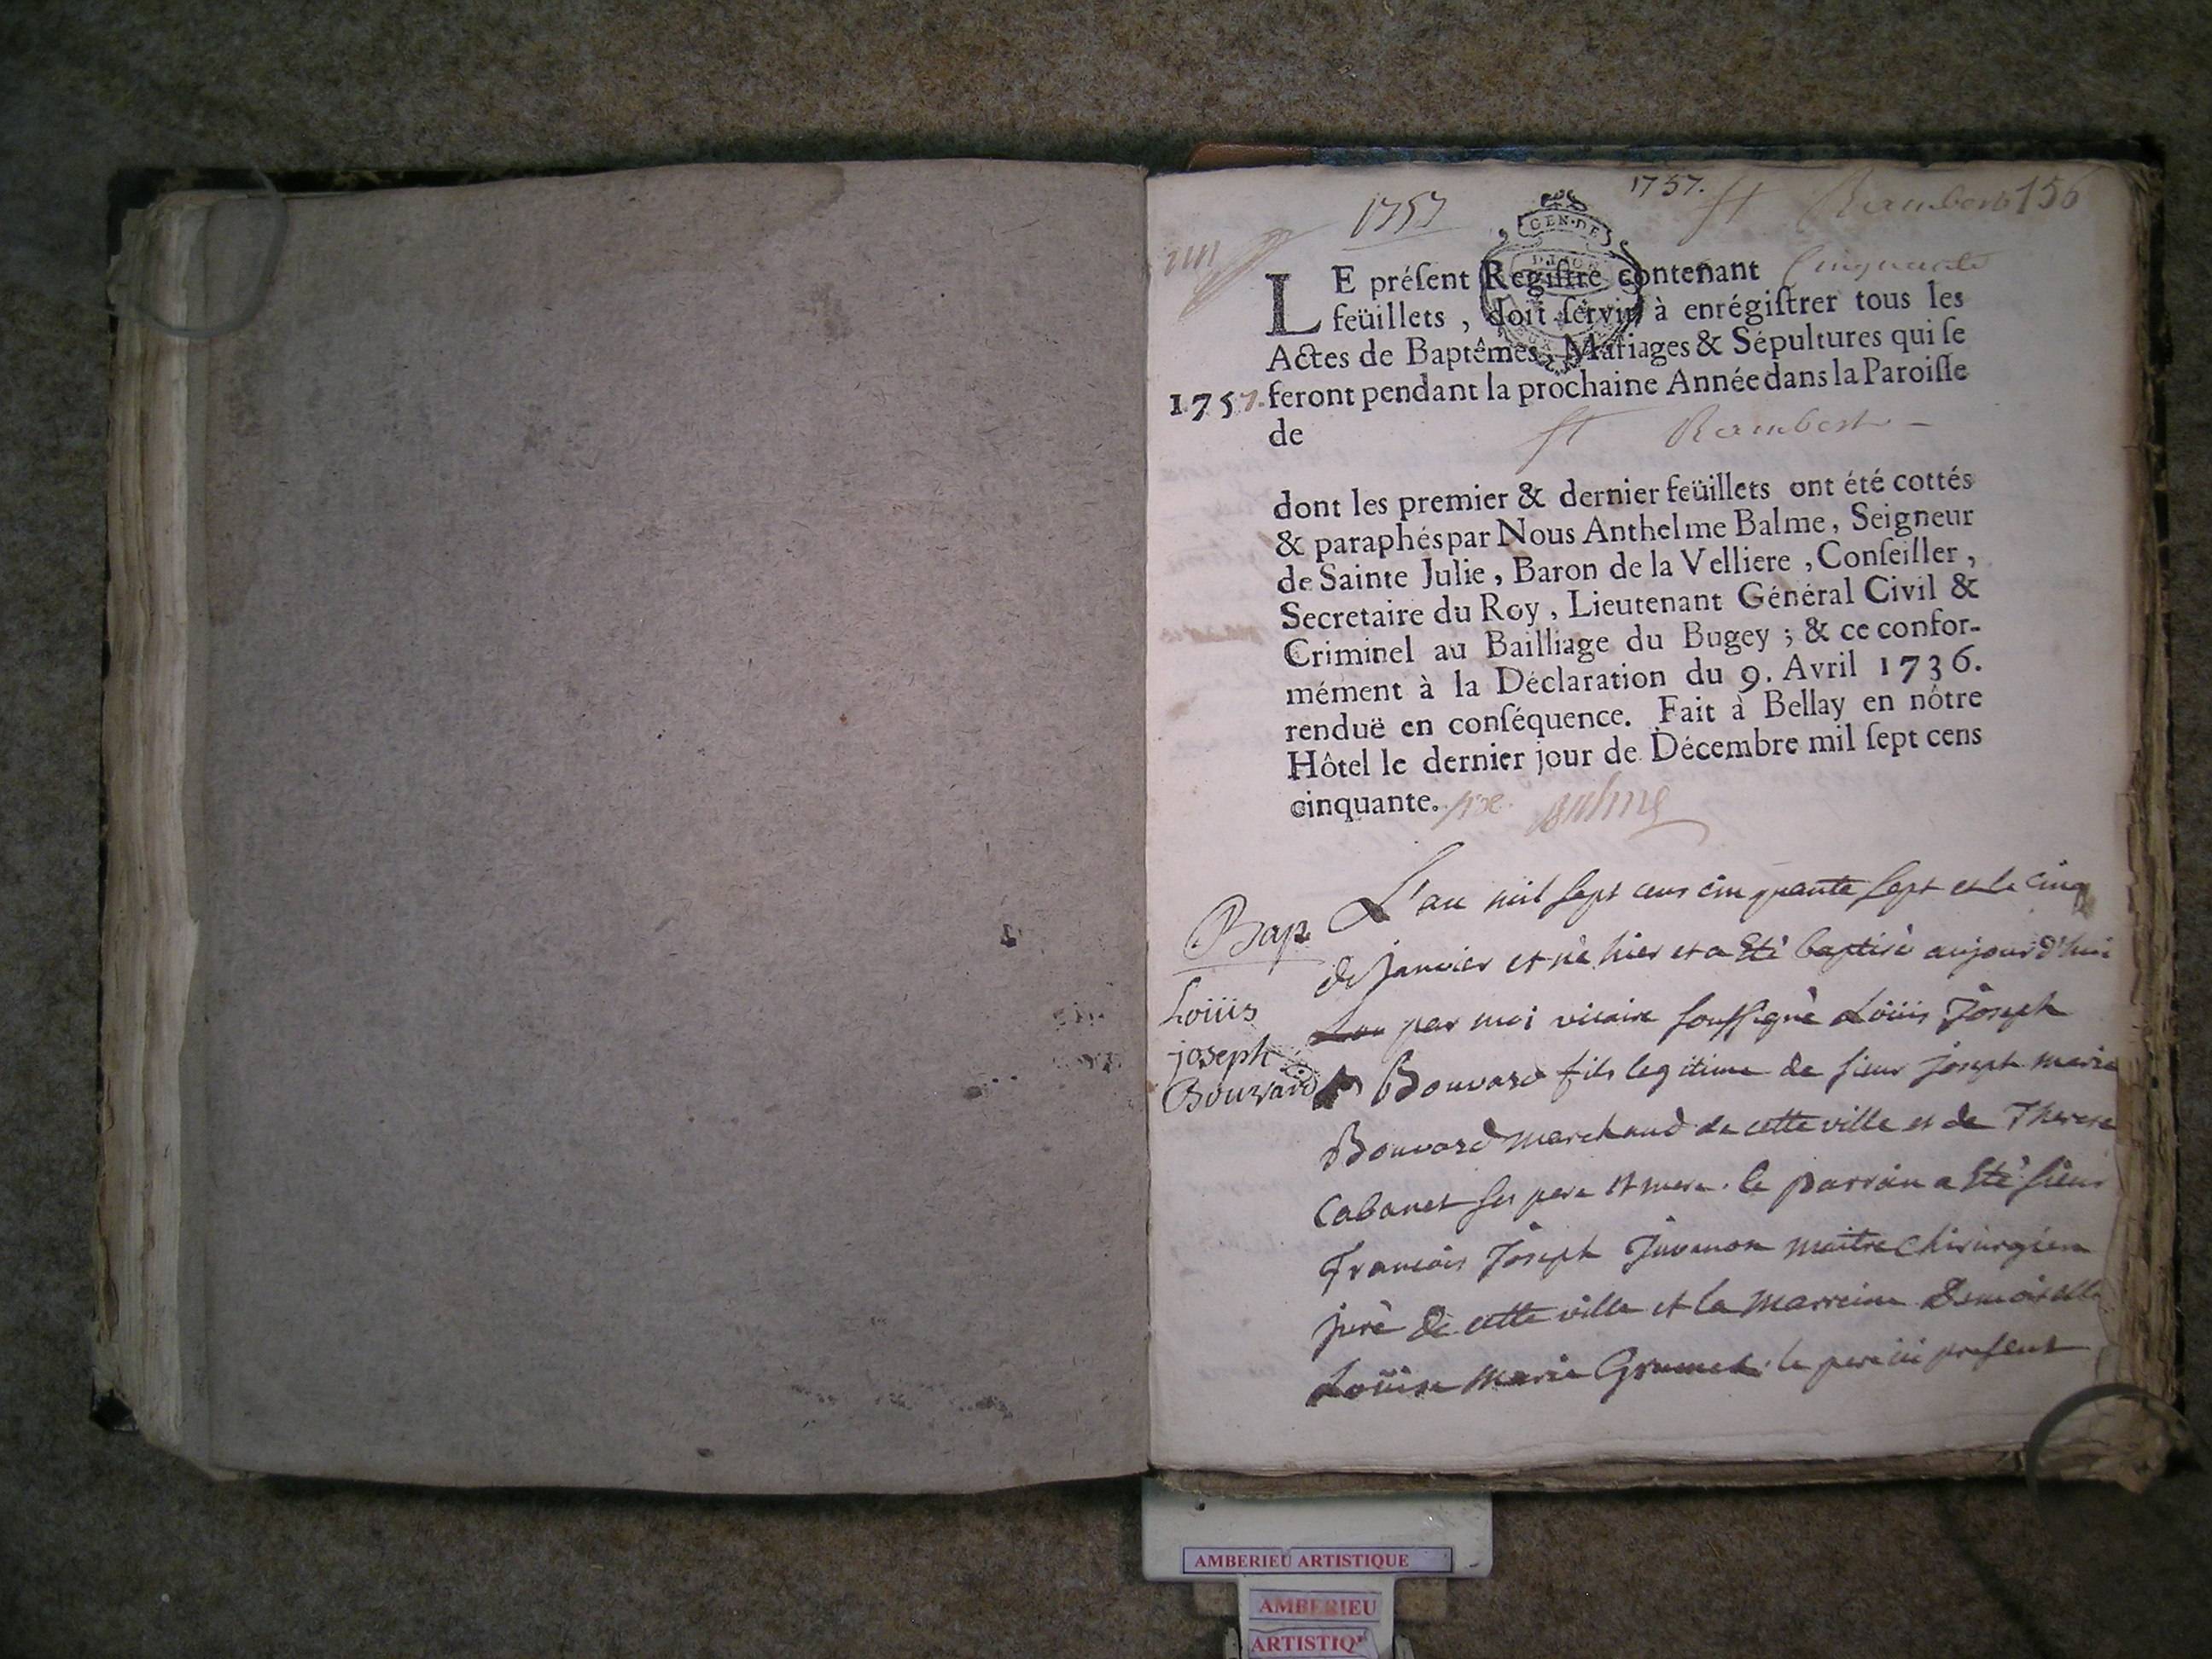 1757
1757.
St Rambert 156
GEN·DE
DIJON
LE préſent Regiſtre contenant Cinquante
feüillets, doit ſervir à enrégiſtrer tous les
Actes de Baptêmes, Mariages & Sépultures qui ſe
1757. feront pendant la prochaine Année dans la Paroiſſe
de St Rambert
dont les premier & dernier feüillets ont été cottés
& paraphés par Nous Anthelme Balme, Seigneur
de Sainte Julie, Baron de la Velliere, Conſeiller,
Secretaire du Roy, Lieutenant Général Civil &
Criminel au Bailliage du Bugey ; & ce confor-
mément à la Déclaration du 9. Avril 1736.
renduë en conſéquence. Fait à Bellay en nôtre
Hôtel le dernier jour de Décembre mil ſept cens
cinquante. six. Balme
Bap
Loüis
joseph
Bouvard
L'an mil sept cens cinquante sept et le cinq
de janvier et né hier et a Eté baptisé aujourd'hui
Lou par moi vicaire soussigné Loüis Joseph
Bouvard fils legitime de sieur joseph marie
Bouvard marchand de cette ville et de Therese
Cabanet ses pere et mere. le parrain a Eté sieur
François Joseph Juvanon maitre chirurgien
juré de cette ville et la marreine Demoiselle
Loüise marie Grumet. le pere ici present
AMBERIEU ARTISTIQUE
AMBERIEU
ARTISTIQ